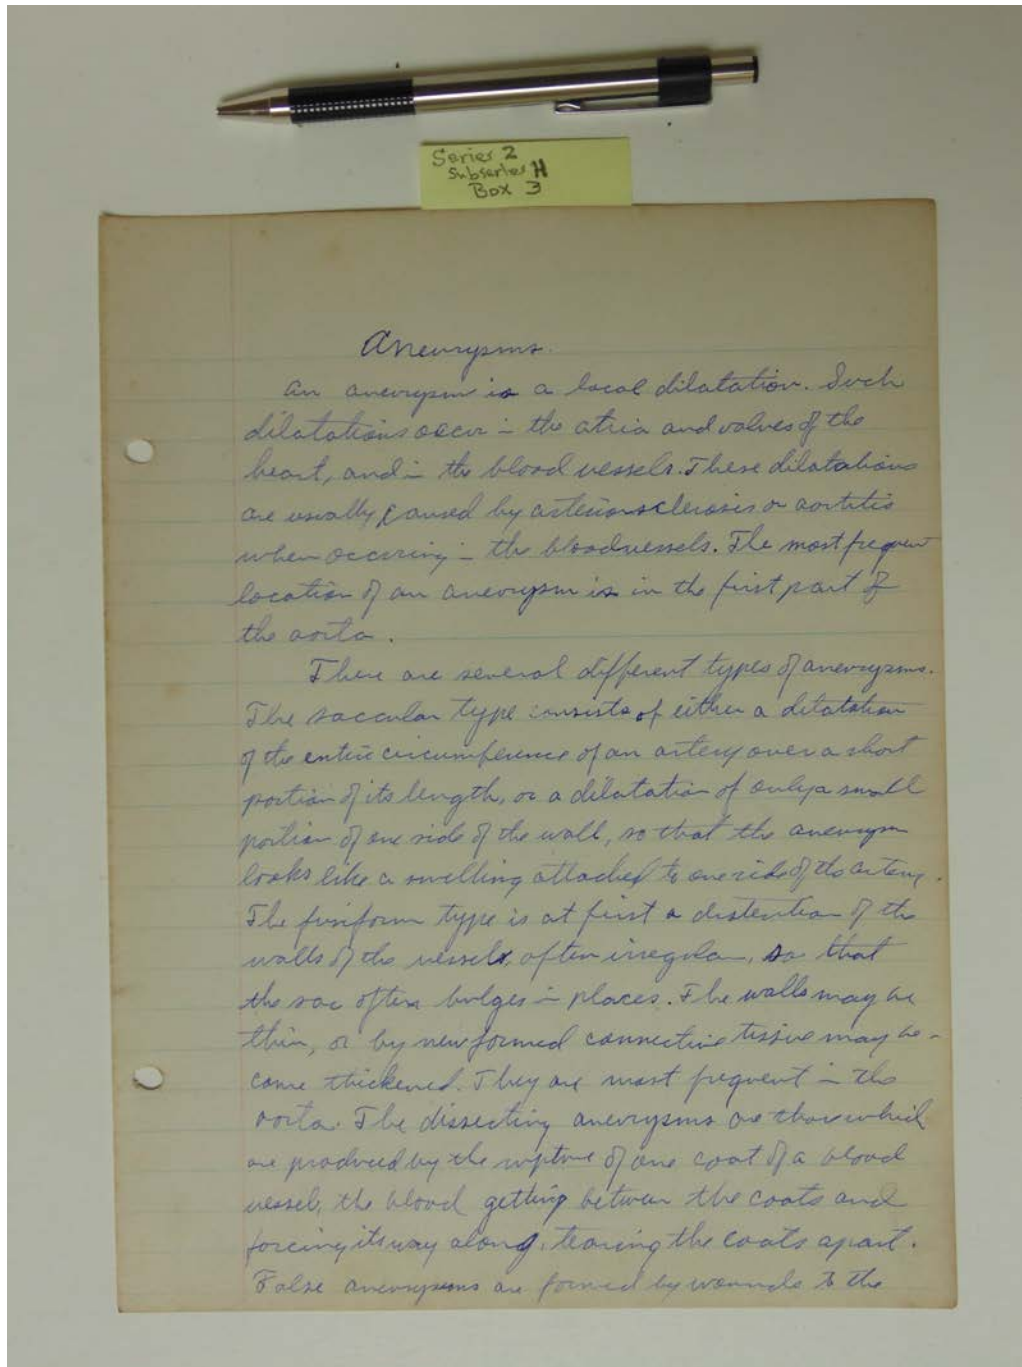 Series 2
Subseries H
Box 3
Aneurysms.
An aneurysm is a local dilatation. Such
dilatations occur in the atria and valves of the
heart, and in the blood vessels. These dilatations
are usually caused by arteriosclerosis or aortitis
when occuring in the bloodvessels. The most frequent
location of an aneurysm is in the first part of
the aorta.
There are several different types of aneurysms.
The saccular type consists of either a dilatation
of the entire circumference of an artery over a short
portion of its length, or a dilatation of only a small
portion of one side of the wall, so that the aneurysm
looks like a swelling attached to one side of the artery.
The fusiform type is at first a distention of the
walls of the vessels, often irregular, so that
the sac often bulges in places. The walls may be
thin, or by new formed connective tissue may be-
come thickened. They are most frequent in the
aorta. The dissecting aneurysms are those which
are produced by the rupture of one coat of a blood
vessel, the blood getting between the coats and
forcing its way along, tearing the coats apart.
False aneurysms are formed by wounds to the